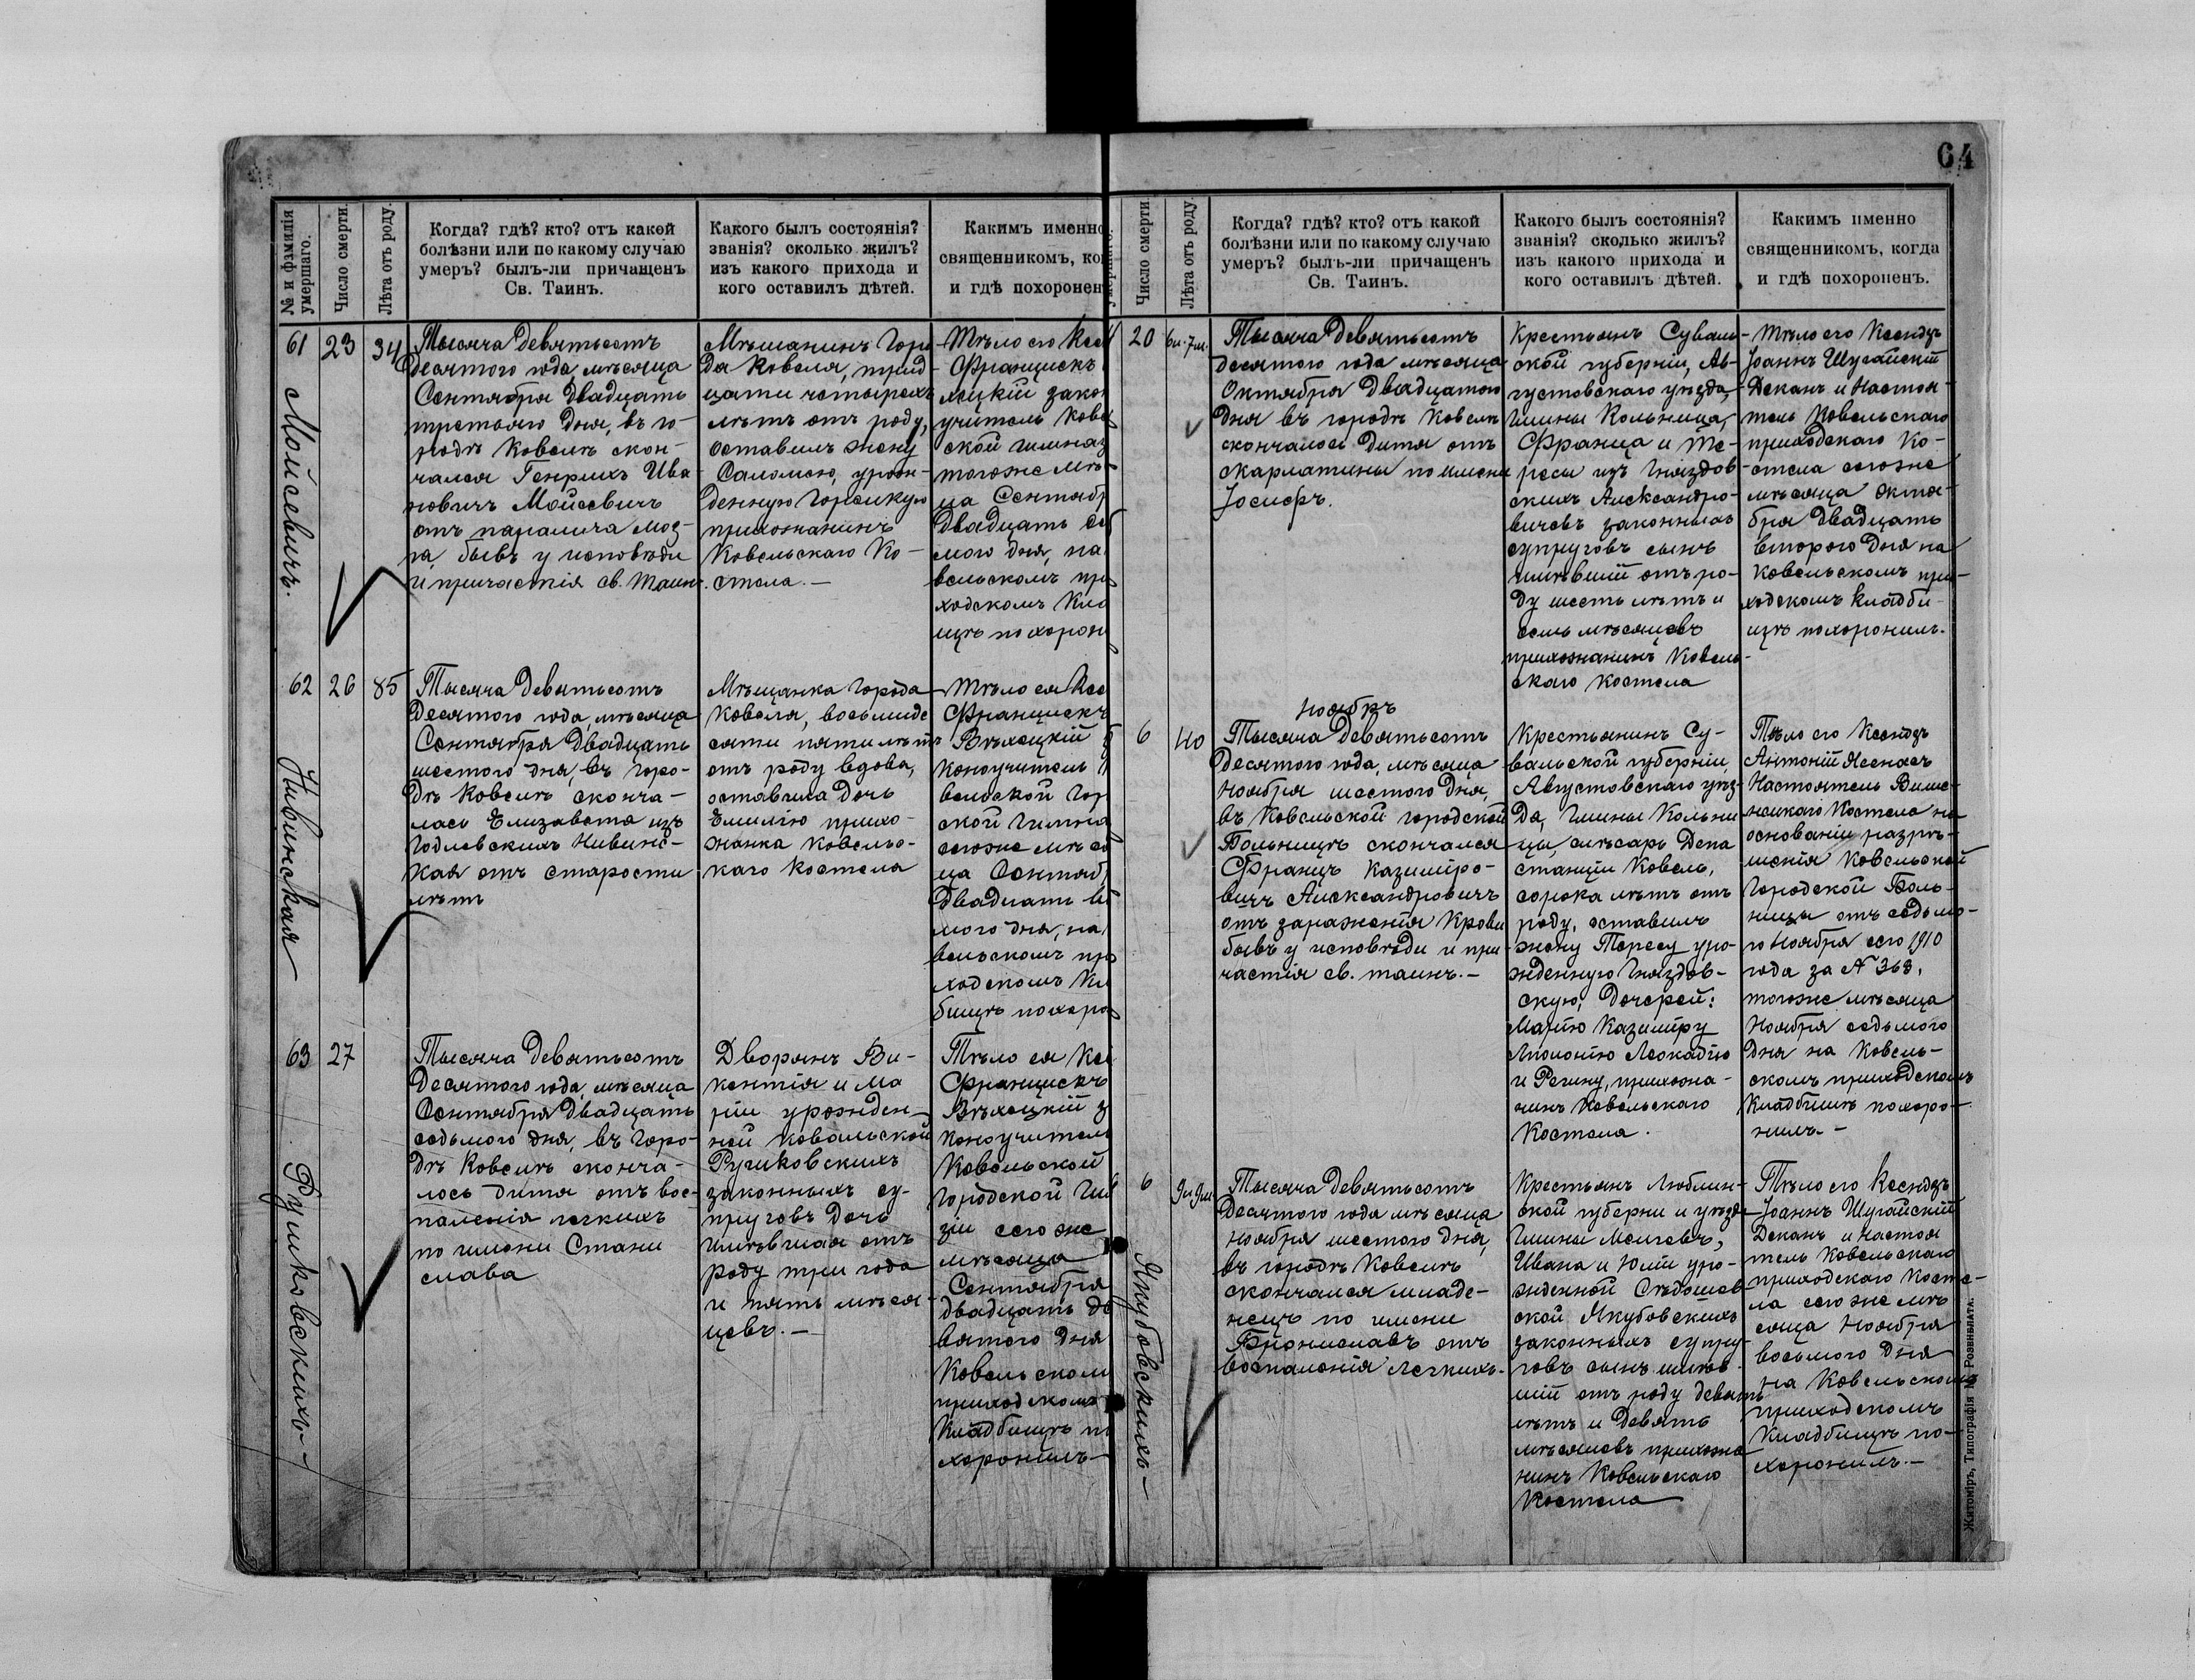 64
№ и фамилія
умершаго.
Число смерти.
Лѣта отъ роду.
Когда? гдѣ? кто? отъ какой
болѣзни или по какому случаю
умеръ? былъ-ли причащенъ
Св. Таинъ.
Какого былъ состоянія?
званія? сколько жилъ?
изъ какого прихода и
кого оставилъ дѣтей.
Какимъ именно
священникомъ, ко
и гдѣ похоронен
61
Мойсевичъ.
23
34
Тысяча девятьсотъ
десятого года, мѣсяца
Сентября двадцать
третьяго дня, въ го-
родѣ Ковелѣ скон-
чался Генрихъ Ива
новичъ Мойсевичъ
отъ паралича моз-
га, бывъ у исповѣди
и причастія св. Таинъ.
Мѣщанинъ Горо
да Ковеля, трид
цати четырехъ
лѣтъ отъ роду,
оставилъ жену
Саломею, урож-
денную Горецкую
прихожанинъ
Ковельскаго Ко-
стела.—
Тѣло его Ксе
Францискъ
лецкій закон
учитель Ковел
ской гимназ
тогоже мѣ
ца Сентябр
двадцать се
мого дня, на
вельскомъ при
ходскомъ Кла
щѣ похорон
62
Нивинская
26
85
Тысяча девятьсотъ
десятого года, мѣсяца
Сентября двадцать
шестого дня, въ горо-
дѣ Ковелѣ сконча-
лась Елизавета изъ
Годлевскихъ Нивинс-
кая отъ старости
лѣтъ
Мѣщанка города
Ковеля, восьмиде
сяти пяти лѣтъ
отъ роду вдова,
оставила дочь
Емилію прихо-
жанка Ковельс-
каго Костела
Тѣло ея Ксе
Францискъ
Вѣлецкій
коноучитель
вельской гор
ской Гимна
сегоже мѣся
ца Сентяб
двадцать
мого дня, на
вельскомъ при
ходскомъ Кл
бищѣ похоро
63
Рушковскихъ—
27
Тысяча девятьсотъ
десятого года, мѣсяца
Сентября двадцать
седьмого дня, въ горо-
дѣ Ковелѣ сконча-
лось дитя отъ вос-
паленія легкихъ
по имени Стани
слава
Дворянъ Ви-
кентія и Ма
ріи урожден-
ной Ковальской
Рушковскихъ
законныхъ су-
пруговъ дочь
имѣвшая отъ
роду три года
и пять мѣся-
цевъ.—
Тѣло ея Ксе
Францискъ
Вѣлецкій з
коноучитель
Ковельской
городской Гим
зіи сегоже
мѣсяца
Сентября
двадцать де
вятого дня
Ковельском
приходскомъ
Кладбищѣ по
хоронилъ—
Число смерти.
Лѣта отъ роду.
Когда? гдѣ? кто? отъ какой
болѣзни или по какому случаю
умеръ? былъ-ли причащенъ
Св. Таинъ.
Какого былъ состоянія?
званія? сколько жилъ?
изъ какого прихода и
кого оставилъ дѣтей.
Какимъ именно
священникомъ, когда
и гдѣ похороненъ.
20
6л. 7м.
Тысяча девятьсотъ
десятого года мѣсяца
Октября двадцатого
дня въ городѣ Ковелѣ
скончалось дитя отъ
скарлатины по имени
Іосифъ.
Крестьянъ Суваль-
ской губерніи, Ав-
густовскаго уѣзда,
гмины Кольница,
Франца и Те-
ресы изъ Гняздов-
скихъ Александро-
вичевъ законныхъ
супруговъ сынъ
имѣвшій отъ ро-
ду шесть лѣтъ и
семь мѣсяцевъ
прихожанинъ Ковель-
скаго Костела
Тѣло его Ксендзъ
Іоаннъ Шугайскій
Деканъ и Настоя-
тель Ковельскаго
приходскаго Ко-
стела сегоже
мѣсяца Октя-
бря двадцать
второго дня на
Ковельскомъ при-
ходскомъ Кладби-
щѣ похоронилъ.
Ноябрь
6
40
Тысяча девятьсотъ
десятого года, мѣсяца
Ноября шестого дня,
въ Ковельской городской
Больницѣ скончался
Францъ Казимiро-
вичъ Александровичъ
отъ зараженія крови
бывъ у исповѣди и при
частія св. таинъ.—
Крестьянинъ Су-
вальской губерніи,
Августовскаго уѣз-
да, гмины Кольни
цы, слѣсарь Депа
станціи Ковель,
сорока лѣтъ отъ
роду, оставилъ
жену Тересу уро-
жденную Гняздов-
скую, дочерей:
Марію Казимiру
Аполонію Леокадію
и Регину, прихожа-
нинъ Ковельскаго
Костела.
Тѣло его Ксендзъ
Антоній Ясенасъ
Настоятель
Костела на
основаніи разрѣ-
шенія Ковельской
Городской Боль-
ницы отъ седьмо-
го Ноября сего 1910
года за № 368,
тогоже мѣсяца
Ноября седьмого
дня на Ковель-
скомъ приходскомъ
Кладбищѣ похоро-
нилъ.—
Якубовскихъ—
6
9л 9м
Тысяча девятьсотъ
десятого года мѣсяца
Ноября шестого дня,
въ городѣ Ковелѣ
скончался младе-
нецъ по имени
Брониславъ отъ
воспаленія легкихъ.
Крестьянъ Люблин-
ской губерни и уѣзда
гмины
Ивана и Юліи уро-
жденной
ской Якубовскихъ
законныхъ супру-
говъ сынъ имѣв-
шій отъ роду девять
лѣтъ и девять
мѣсяцевъ прихожа
нинъ Ковельскаго
Костела
Тѣло его Ксендзъ
Іоаннъ Шугайскій
Деканъ и Настоя
тель Ковельскаго
приходскаго Косте-
ла сегоже мѣ
сяца Ноября
восьмого дня
на Ковельскомъ
приходскомъ
Кладбищѣ по-
хоронилъ.—
Житоміръ, Типографія М. Розенблата.